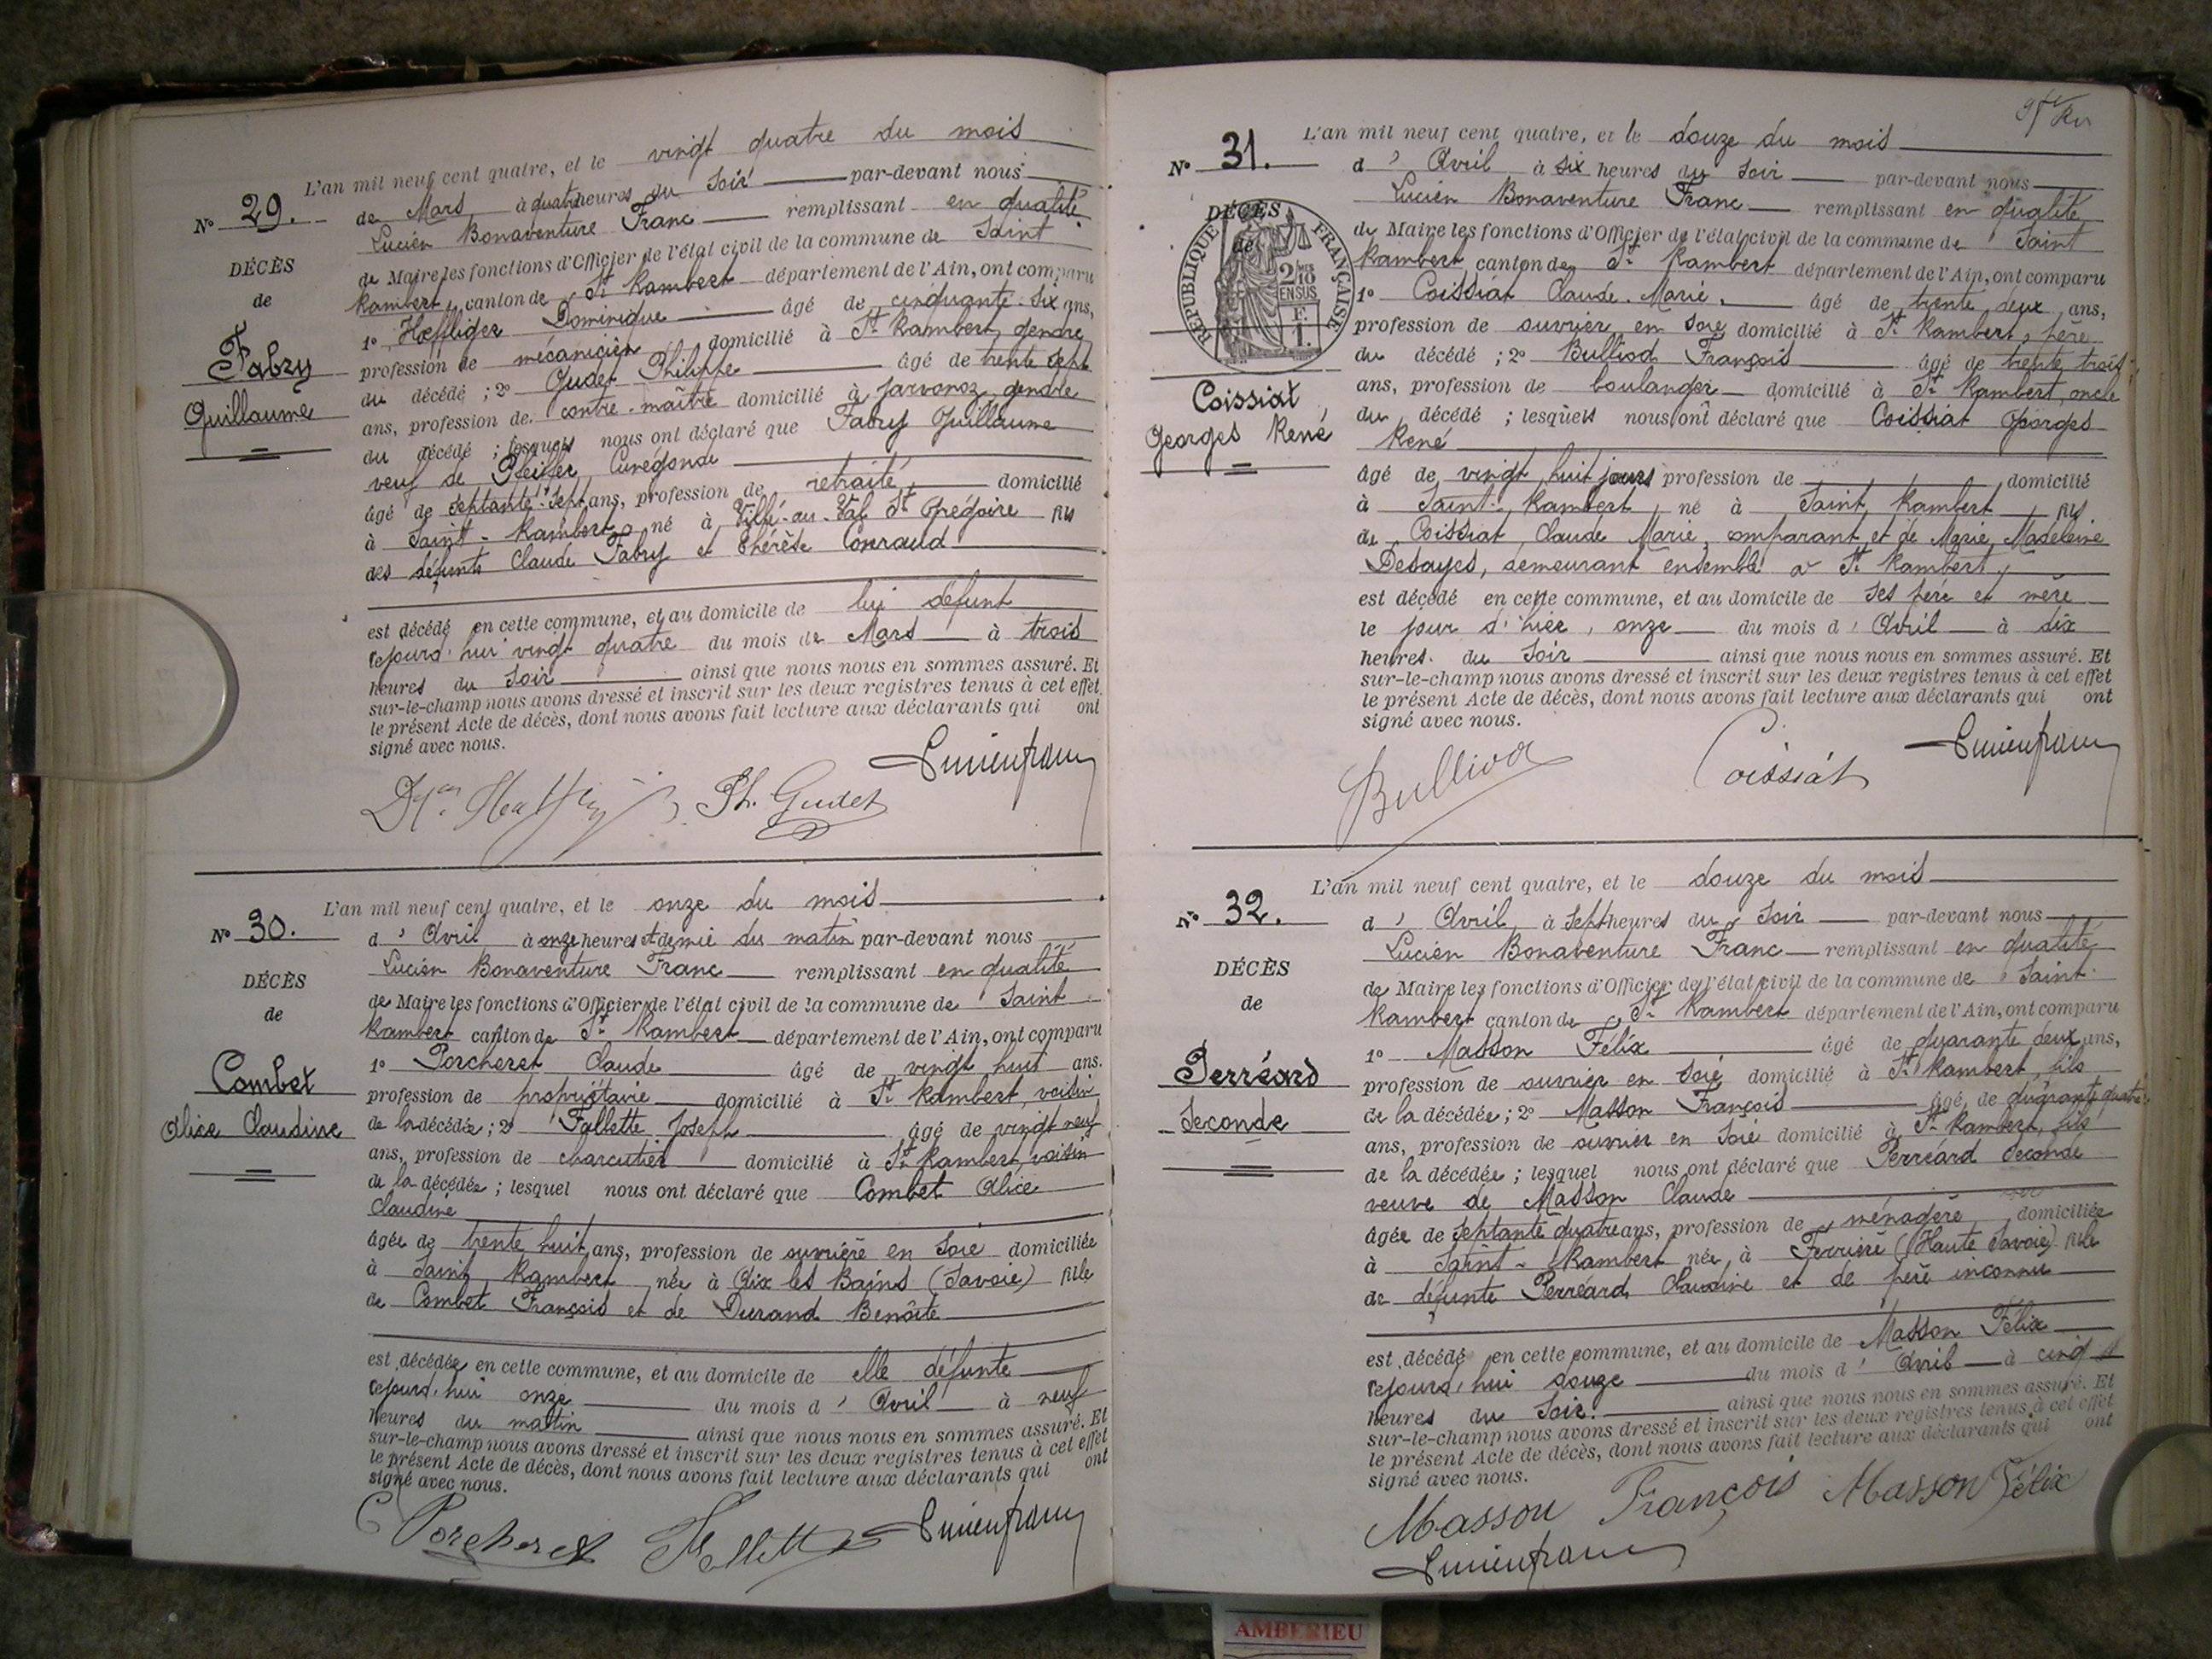 L'an mil neuf cent quatre, et le vingt quatre du mois
de Mars à quatre heures du soir par-devant nous
Lucien Bonaventure Franc remplissant en qualité
de Maire les fonctions d'Officier de l'état civil de la commune de Saint
Rambert, canton de St Rambert département de l'Ain, ont comparu
1° Hoeffliger Dominique âgé de cinquante-six ans,
profession de mécanicien domicilié à St Rambert, gendre
du décédé ; 2° Gudet Philippe âgé de trente sept
ans, profession de contre-maître domicilié à gendre
du décédé ; lesquels nous ont déclaré que Fabry Guillaume
veuf de Pfeiffer Cunégonde
âgé de septante-sept ans, profession de retraité, domicilié
à Saint-Rambert né à Villé-au-Val St Grégoire fils
des défunts Claude Fabry et Thérèse Conraud
est décédé en cette commune, et au domicile de lui défunt
cejourd'hui vingt quatre du mois de Mars à trois
heures du soir ainsi que nous nous en sommes assuré. Et
sur-le-champ nous avons dressé et inscrit sur les deux registres tenus à cet effet
le présent Acte de décès, dont nous avons fait lecture aux déclarants qui ont
signé avec nous.
N° 29.
DÉCÈS
de
Fabry
Guillaume
Lucien franc
Ph. Gudet
L'an mil neuf cent quatre, et le onze du mois
d'Avril à onze heures et demie du matin par-devant nous
Lucien Bonaventure Franc remplissant en qualité
de Maire les fonctions d'Officier de l'état civil de la commune de Saint
Rambert canton de St Rambert département de l'Ain, ont comparu
1° Porcheret Claude âgé de vingt huit ans.
profession de propriétaire domicilié à St Rambert, voisin
de la décédée ; 2° Fallette Joseph âgé de vingt neuf
ans, profession de charcutier domicilié à St Rambert, voisin
de la décédée ; lesquel nous ont déclaré que Combet Alice
Claudine
âgée de trente huit ans, profession de ouvrière en soie domiciliée
à Saint Rambert née à Aix les Bains (Savoie) fille
de Combet François et de Durand Benoîte
est décédée en cette commune, et au domicile de elle défunte
cejourd'hui onze du mois d'Avril à neuf
heures du matin ainsi que nous nous en sommes assuré. Et
sur-le-champ nous avons dressé et inscrit sur les deux registres tenus à cet effet
le présent Acte de décès, dont nous avons fait lecture aux déclarants qui ont
signé avec nous.
N° 30.
DÉCÈS
de
Combet
Alice Claudine
C Porcheret Fallette Lucien franc
L'an mil neuf cent quatre, et le douze du mois
d'Avril à six heures du soir par-devant nous
Lucien Bonaventure Franc remplissant en qualité
de Maire les fonctions d'Officier de l'état civil de la commune de Saint
Rambert canton de St Rambert département de l'Ain, ont comparu
1° Coissiat Claude-Marie, âgé de trente deux ans,
profession de ouvrier en soie domicilié à St Rambert, père
du décédé ; 2° Bulliod François âgé de trente trois
ans, profession de boulanger domicilié à St Rambert, oncle
du décédé ; lesquels nous ont déclaré que Coissiat Georges
René
âgé de vingt huit jours profession de domicilié
à Saint-Rambert né à Saint Rambert fils
de Coissiat Claude Marie, comparant et de Marie Madeleine
Desayes, demeurant ensemble à St Rambert,
est décédé en cette commune, et au domicile de ses père et mère
le jour d'hier, onze du mois d'Avril à six
heures du soir ainsi que nous nous en sommes assuré. Et
sur-le-champ nous avons dressé et inscrit sur les deux registres tenus à cet effet
le présent Acte de décès, dont nous avons fait lecture aux déclarants qui ont
signé avec nous.
N° 31.
DÉCÈS
de
RÉPUBLIQUE FRANÇAISE
2/10 EN SUS
F. 1.
Coissiat
Georges René
Bulliod Coissiat Lucien franc
L'an mil neuf cent quatre, et le douze du mois
d'Avril à sept heures du soir par-devant nous
Lucien Bonaventure Franc remplissant en qualité
de Maire les fonctions d'Officier de l'état civil de la commune de Saint-
Rambert canton de St Rambert département de l'Ain, ont comparu
1° Masson Félix âgé de quarante deux ans,
profession de ouvrier en soie domicilié à St Rambert, fils
de la décédée ; 2° Masson François âgé de quarante quatre
ans, profession de ouvrier en soie domicilié à St Rambert, fils
de la décédée ; lesquel nous ont déclaré que Perréard Seconde
veuve de Masson Claude
âgée de septante quatre ans, profession de ménagère domiciliée
à Saint-Rambert née à Ferrière (Haute Savoie) fille
de défunte Perréard Claudine et de père inconnu
est décédé en cette commune, et au domicile de Masson Félix
cejourd'hui douze du mois d'Avril à cinq
heures du soir. ainsi que nous nous en sommes assuré. Et
sur-le-champ nous avons dressé et inscrit sur les deux registres tenus à cet effet
le présent Acte de décès, dont nous avons fait lecture aux déclarants qui ont
signé avec nous.
N° 32.
DÉCÈS
de
Perréard
Seconde
Masson François Masson Félix
Lucien franc
AMBERIEU